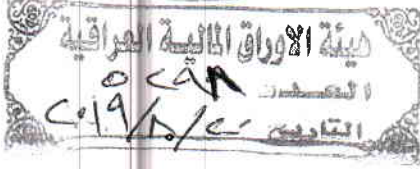 هيئة الاوراق المالية العراقية
العدد ٥٢٩٨
التاريخ ٢٠١٩/٨/٢٠